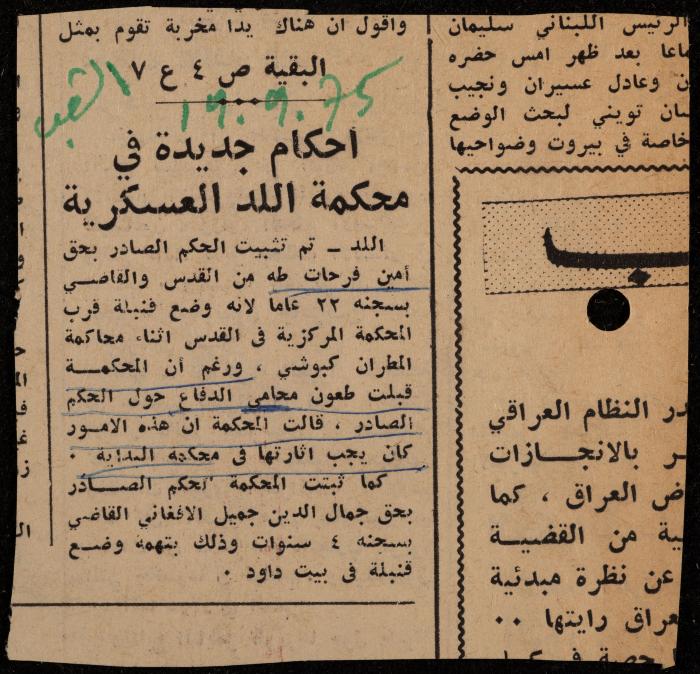 واقول ان هناك يدا مخربة تقوم بمثل
البقية ص ٤ ع ٧
الشعب
19.9.75
احكام جديدة في
محكمة اللد العسكرية
اللد ــ تم تثبيت الحكم الصادر بحق
أمين فرحات طه من القدس والقاضي
بسجنه ٢٢ عاما لانه وضع قنبلة قرب
المحكمة المركزية في القدس اثناء محاكمة
المطران كبوشي ، ورغم أن المحكمــة
قبلت طعون محامي الدفاع حول الحكم
الصادر ، قالت المحكمة ان هذه الامـور
كان يجب اثارتها في محكمه البداية .
كما ثبتت المحكمة الحكم الصــادر
بحق جمال الدين جميل الافغاني القاضي
بسجنه ٤ سنوات وذلك بتهمة وضـع
قنبلة في بيت داود .
الرئيس اللبناني سليمان
بعد ظهر امس حضره
وعادل عسيران ونجيب
تويني لبحث الوضع
خاصة في بيروت وضواحيها
النظام العراقي
بالانجــازات
العراق ، كما
من القضيــة
عن نظرة مبدئية
رايتها ٠٠